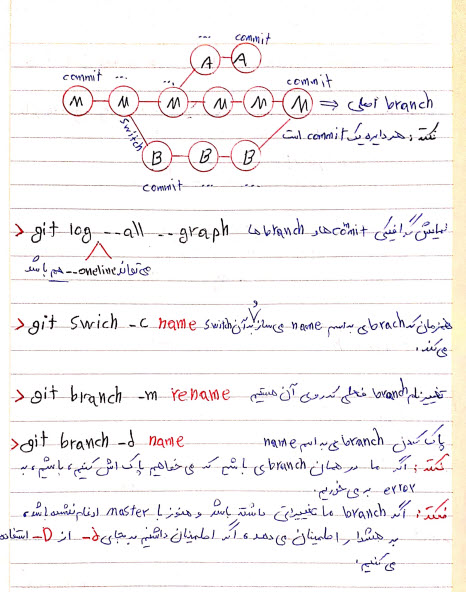 ... commit
A A
commit ... ... commit
M M M M M M ⇒ branch اصلی
switch
نکته: هر دایره یک commit است
B B B
commit ... ...
> git log --all --graph نمایش گرافیکی commit ها و branch ها
می‌تواند --oneline هم باشد
> git swich -c name همزمان که brach ی به اسم name می‌سازد و به آن switch
می‌کند.
> git branch -m rename تغییر نام branch فعلی که روی آن هستیم
> git branch -d name پاک کردن branch ی به اسم name
نکته: اگر ما در همان branch ی باشیم که می‌خواهیم پاک اش کنیم، باشیم، به
error بر می‌خوریم.
نکته: اگر branch ما تغییراتی داشته باشد و هنوز با master ادغام نشده باشد،
به هشدار اطمینان می‌دهد، اگر اطمینان داشتیم به جای -d از -D استفاده
می‌کنیم.